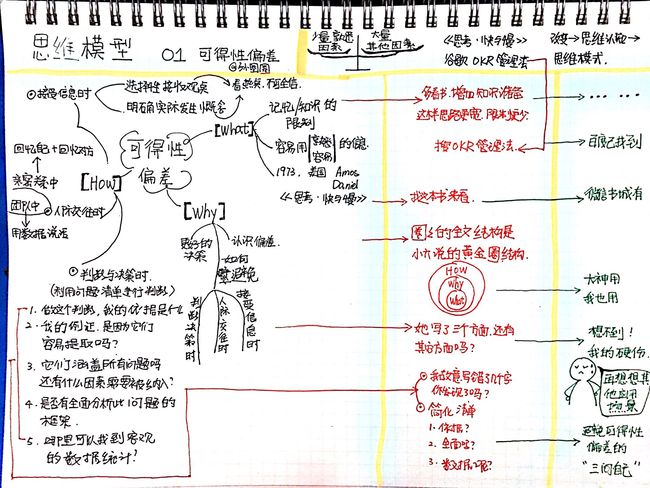 思维模型 01 可得性偏差
少量熟悉因素
大量其他因素
《思考·快与慢》
谷歌OKR管理法
思维模式.
接受信息时
选择性接收观点
看趋势,不可全信
明确实际发生概率
回忆配+回忆坊
实际案中
团队中
人际交往时
用数据说话
[How]
可得性
偏差
[What]
记忆/知识的
限制
容易用
熟悉
容易
的信息
1973, 美国 Amos
Daniel
《思考·快与慢》
[Why]
更好的
决策
认识偏差.
如何
避免
判断决策时
人际交往时
接受信息时
判断与决策时.
(利用问题清单进行判断)
1. 做这个判断,我的依据是什么
2. 我的例证,是因为它们
容易提取吗?
3. 它们涵盖所有问题吗
还有什么因素需要被纳入?
4. 是否有全面分析此问题的
框架.
5. 哪里可以找到客观
的数据统计?
多看书,增加知识储备
这样思路更宽,限制变少
按OKR管理法.
找这本书来看.
圈外的全文结构是
小六说的黄金圈结构.
HOW
Why
What
她写了三个方面,还有
其它方面吗?
我故意写错了几个字
你发现了吗?
简化清单
1. 依据?
2. 全面吗?
3. 数据呢?
... ...
百度已找到
微信书城有
大神用
我也用
想不到!
我的硬伤.
再想想其
他应用
场景
避免可得性
偏差的
“三问自己”